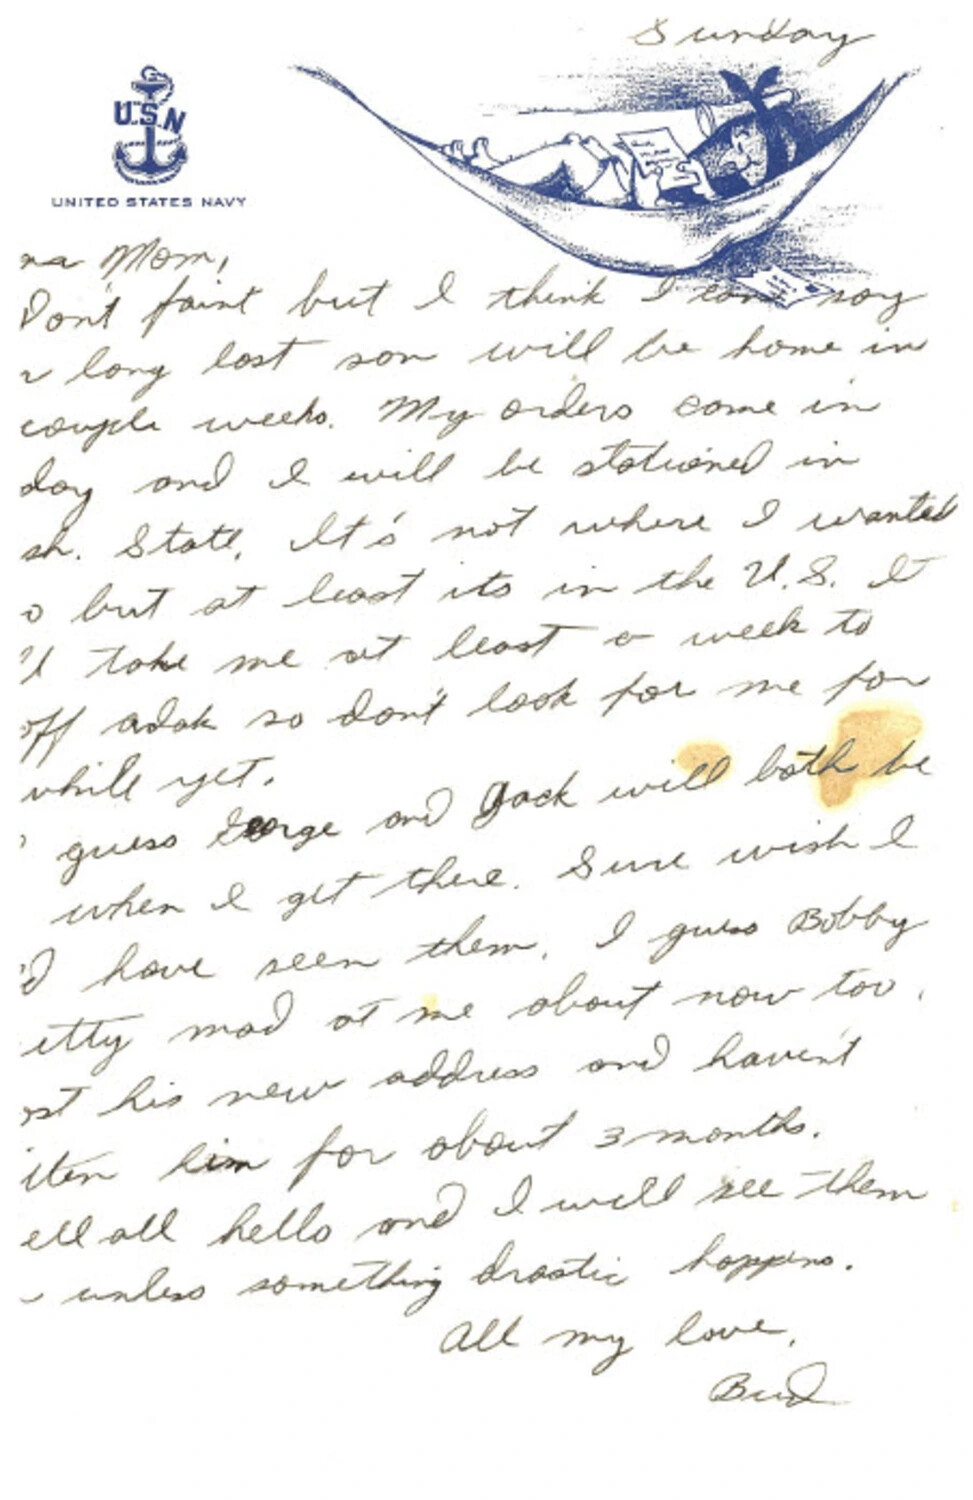 Sunday
U.S.N
UNITED STATES NAVY
na Mom,
Don't faint but I think I can say
r long lost son will be home in
couple weeks. My orders come in
day and I will be stationed in
sh. State. It's not where I wanted
o but at least its in the U.S. It
'll take me at least a week to
off adak so don't look for me for
while yet.
guess George and Jack will both be
when I get there. Sure wish I
'd have seen them. I guess Bobby
etty mad at me about now too.
st his new address and haven't
itten him for about 3 months.
ell all hello and I will see them
unless something drastic happens.
All my love,
Bud